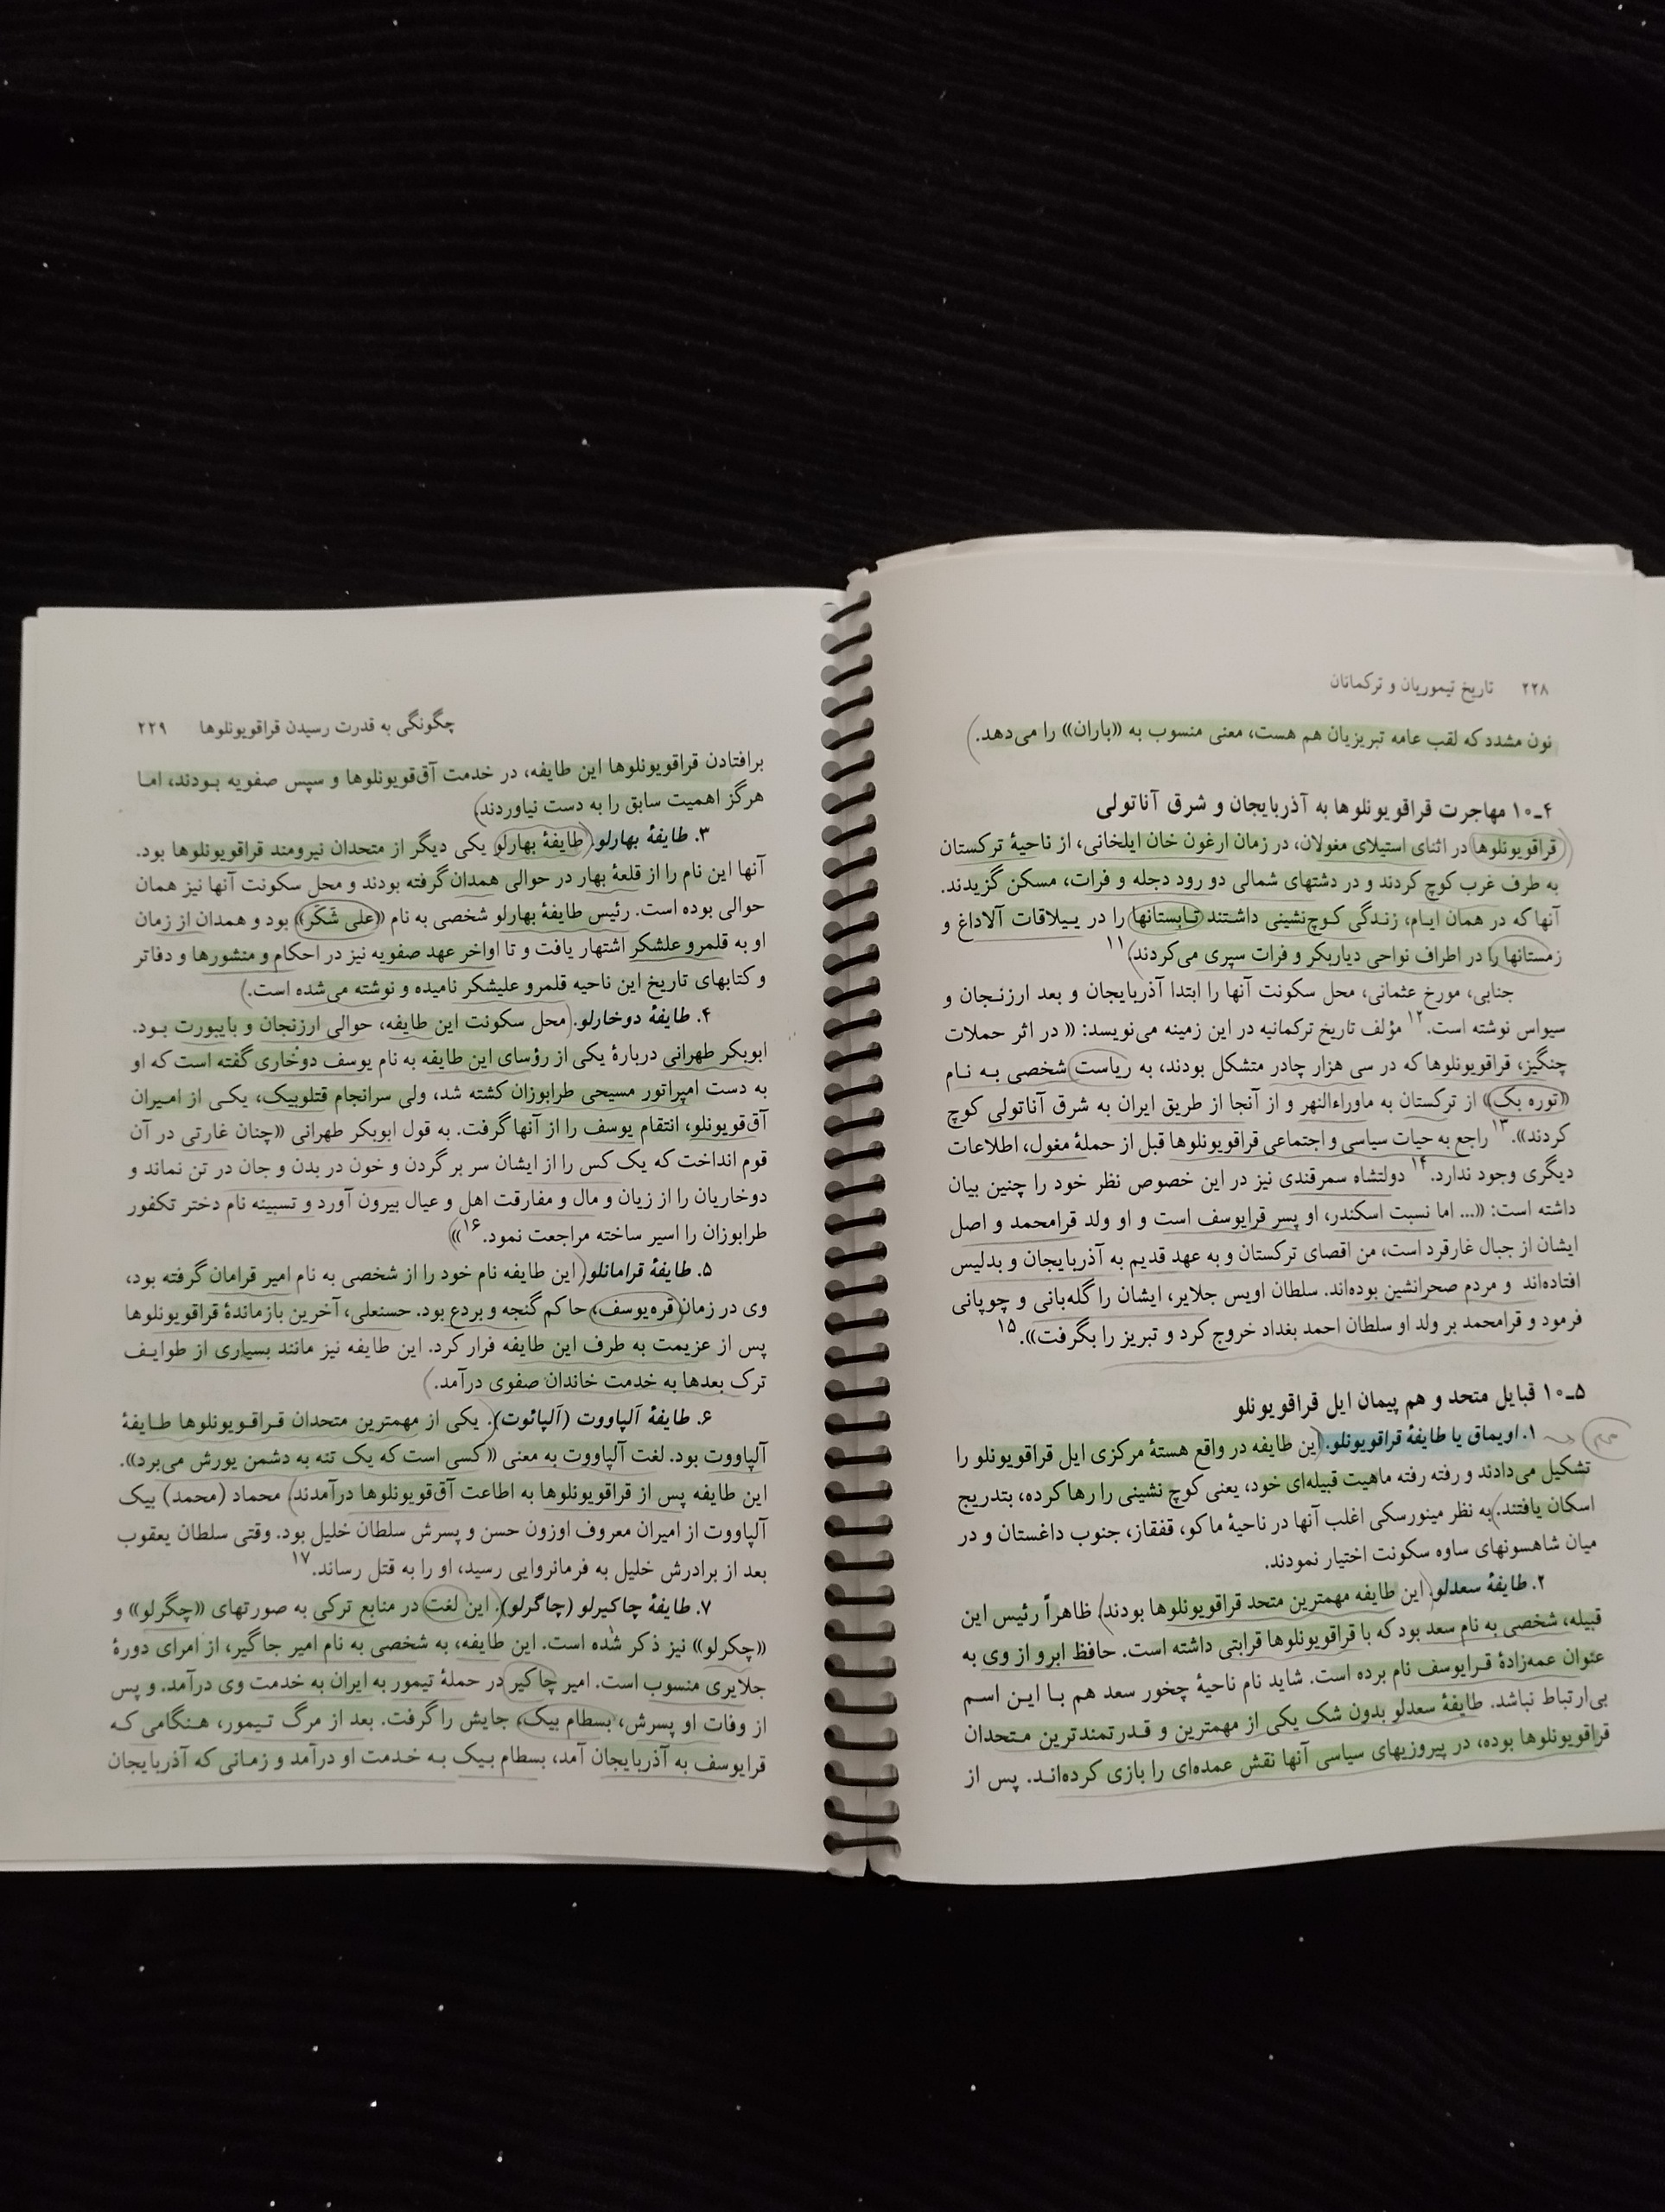 ۲۲۸ تاریخ تیموریان و ترکمانان
نون مشدد که لقب عامه تبریزیان هم هست، معنی منسوب به «باران» را می‌دهد.
۴ـ۱۰ مهاجرت قراقویونلوها به آذربایجان و شرق آناتولی
قراقویونلوها در اثنای استیلای مغولان، در زمان ارغون خان ایلخانی، از ناحیهٔ ترکستان
به طرف غرب کوچ کردند و در دشتهای شمالی دو رود دجله و فرات، مسکن گزیدند.
آنها که در همان ایام، زندگی کوچ‌نشینی داشتند تابستانها را در ییلاقات آلاداغ و
زمستانها را در اطراف نواحی دیاربکر و فرات سپری می‌کردند.۱۱
جنابی، مورخ عثمانی، محل سکونت آنها را ابتدا آذربایجان و بعد ارزنجان و
سیواس نوشته است.۱۲ مؤلف تاریخ ترکمانیه در این زمینه می‌نویسد: « در اثر حملات
چنگیز، قراقویونلوها که در سی هزار چادر متشکل بودند، به ریاست شخصی به نام
«توره بک» از ترکستان به ماوراءالنهر و از آنجا از طریق ایران به شرق آناتولی کوچ
کردند».۱۳ راجع به حیات سیاسی و اجتماعی قراقویونلوها قبل از حملهٔ مغول، اطلاعات
دیگری وجود ندارد.۱۴ دولتشاه سمرقندی نیز در این خصوص نظر خود را چنین بیان
داشته است: «... اما نسبت اسکندر، او پسر قرایوسف است و او ولد قرامحمد و اصل
ایشان از جبال غارقرد است، من اقصای ترکستان و به عهد قدیم به آذربایجان و بدلیس
افتاده‌اند و مردم صحرانشین بوده‌اند. سلطان اویس جلایر، ایشان را گله‌بانی و چوپانی
فرمود و قرامحمد بر ولد او سلطان احمد بغداد خروج کرد و تبریز را بگرفت».۱۵
۵ـ۱۰ قبایل متحد و هم پیمان ایل قراقویونلو
۱. اویماق یا طایفهٔ قراقویونلو. این طایفه در واقع هستهٔ مرکزی ایل قراقویونلو را
تشکیل می‌دادند و رفته رفته ماهیت قبیله‌ای خود، یعنی کوچ نشینی را رها کرده، بتدریج
اسکان یافتند. به نظر مینورسکی اغلب آنها در ناحیهٔ ماکو، قفقاز، جنوب داغستان و در
میان شاهسونهای ساوه سکونت اختیار نمودند.
۲. طایفهٔ سعدلو. این طایفه مهمترین متحد قراقویونلوها بودند. ظاهراً رئیس این
قبیله، شخصی به نام سعد بود که با قراقویونلوها قرابتی داشته است. حافظ ابرو از وی به
عنوان عمه‌زادهٔ قرایوسف نام برده است. شاید نام ناحیهٔ چخور سعد هم با این اسم
بی‌ارتباط نباشد. طایفهٔ سعدلو بدون شک یکی از مهمترین و قدرتمندترین متحدان
قراقویونلوها بوده، در پیروزیهای سیاسی آنها نقش عمده‌ای را بازی کرده‌اند. پس از
چگونگی به قدرت رسیدن قراقویونلوها ۲۲۹
برافتادن قراقویونلوها این طایفه، در خدمت آق‌قویونلوها و سپس صفویه بودند، اما
هرگز اهمیت سابق را به دست نیاوردند.
۳. طایفهٔ بهارلو. طایفهٔ بهارلو یکی دیگر از متحدان نیرومند قراقویونلوها بود.
آنها این نام را از قلعهٔ بهار در حوالی همدان گرفته بودند و محل سکونت آنها نیز همان
حوالی بوده است. رئیس طایفهٔ بهارلو شخصی به نام «علی شَکَر» بود و همدان از زمان
او به قلمرو علشکر اشتهار یافت و تا اواخر عهد صفویه نیز در احکام و منشورها و دفاتر
و کتابهای تاریخ این ناحیه قلمرو علیشکر نامیده و نوشته می‌شده است.
۴. طایفهٔ دوخارلو. محل سکونت این طایفه، حوالی ارزنجان و بایبورت بود.
ابوبکر طهرانی دربارهٔ یکی از رؤسای این طایفه به نام یوسف دوخاری گفته است که او
به دست امپراتور مسیحی طرابوزان کشته شد، ولی سرانجام قتلوبیک، یکی از امیران
آق‌قویونلو، انتقام یوسف را از آنها گرفت. به قول ابوبکر طهرانی «چنان غارتی در آن
قوم انداخت که یک کس را از ایشان سر بر گردن و خون در بدن و جان در تن نماند و
دوخاریان را از زیان و مال و مفارقت اهل و عیال بیرون آورد و تسبینه نام دختر تکفور
طرابوزان را اسیر ساخته مراجعت نمود.۱۶»
۵. طایفهٔ قرامانلو. این طایفه نام خود را از شخصی به نام امیر قرامان گرفته بود،
وی در زمان قره‌یوسف، حاکم گنجه و بردع بود. حسنعلی، آخرین بازماندهٔ قراقویونلوها
پس از عزیمت به طرف این طایفه فرار کرد. این طایفه نیز مانند بسیاری از طوایف
ترک بعدها به خدمت خاندان صفوی درآمد.
۶. طایفهٔ آلپاووت (آلپائوت). یکی از مهمترین متحدان قراقویونلوها طایفهٔ
آلپاووت بود. لغت آلپاووت به معنی «کسی است که یک تنه به دشمن یورش می‌برد».
این طایفه پس از قراقویونلوها به اطاعت آق‌قویونلوها درآمدند. محماد (محمد) بیک
آلپاووت از امیران معروف اوزون حسن و پسرش سلطان خلیل بود. وقتی سلطان یعقوب
بعد از برادرش خلیل به فرمانروایی رسید، او را به قتل رساند.۱۷
۷. طایفهٔ چاکیرلو (چاگرلو). این لغت در منابع ترکی به صورتهای «چگرلو» و
«چکرلو» نیز ذکر شده است. این طایفه، به شخصی به نام امیر جاگیر، از امرای دورهٔ
جلایری منسوب است. امیر چاکیر در حملهٔ تیمور به ایران به خدمت وی درآمد. و پس
از وفات او پسرش، بسطام بیک، جایش را گرفت. بعد از مرگ تیمور، هنگامی که
قرایوسف به آذربایجان آمد، بسطام بیک به خدمت او درآمد و زمانی که آذربایجان